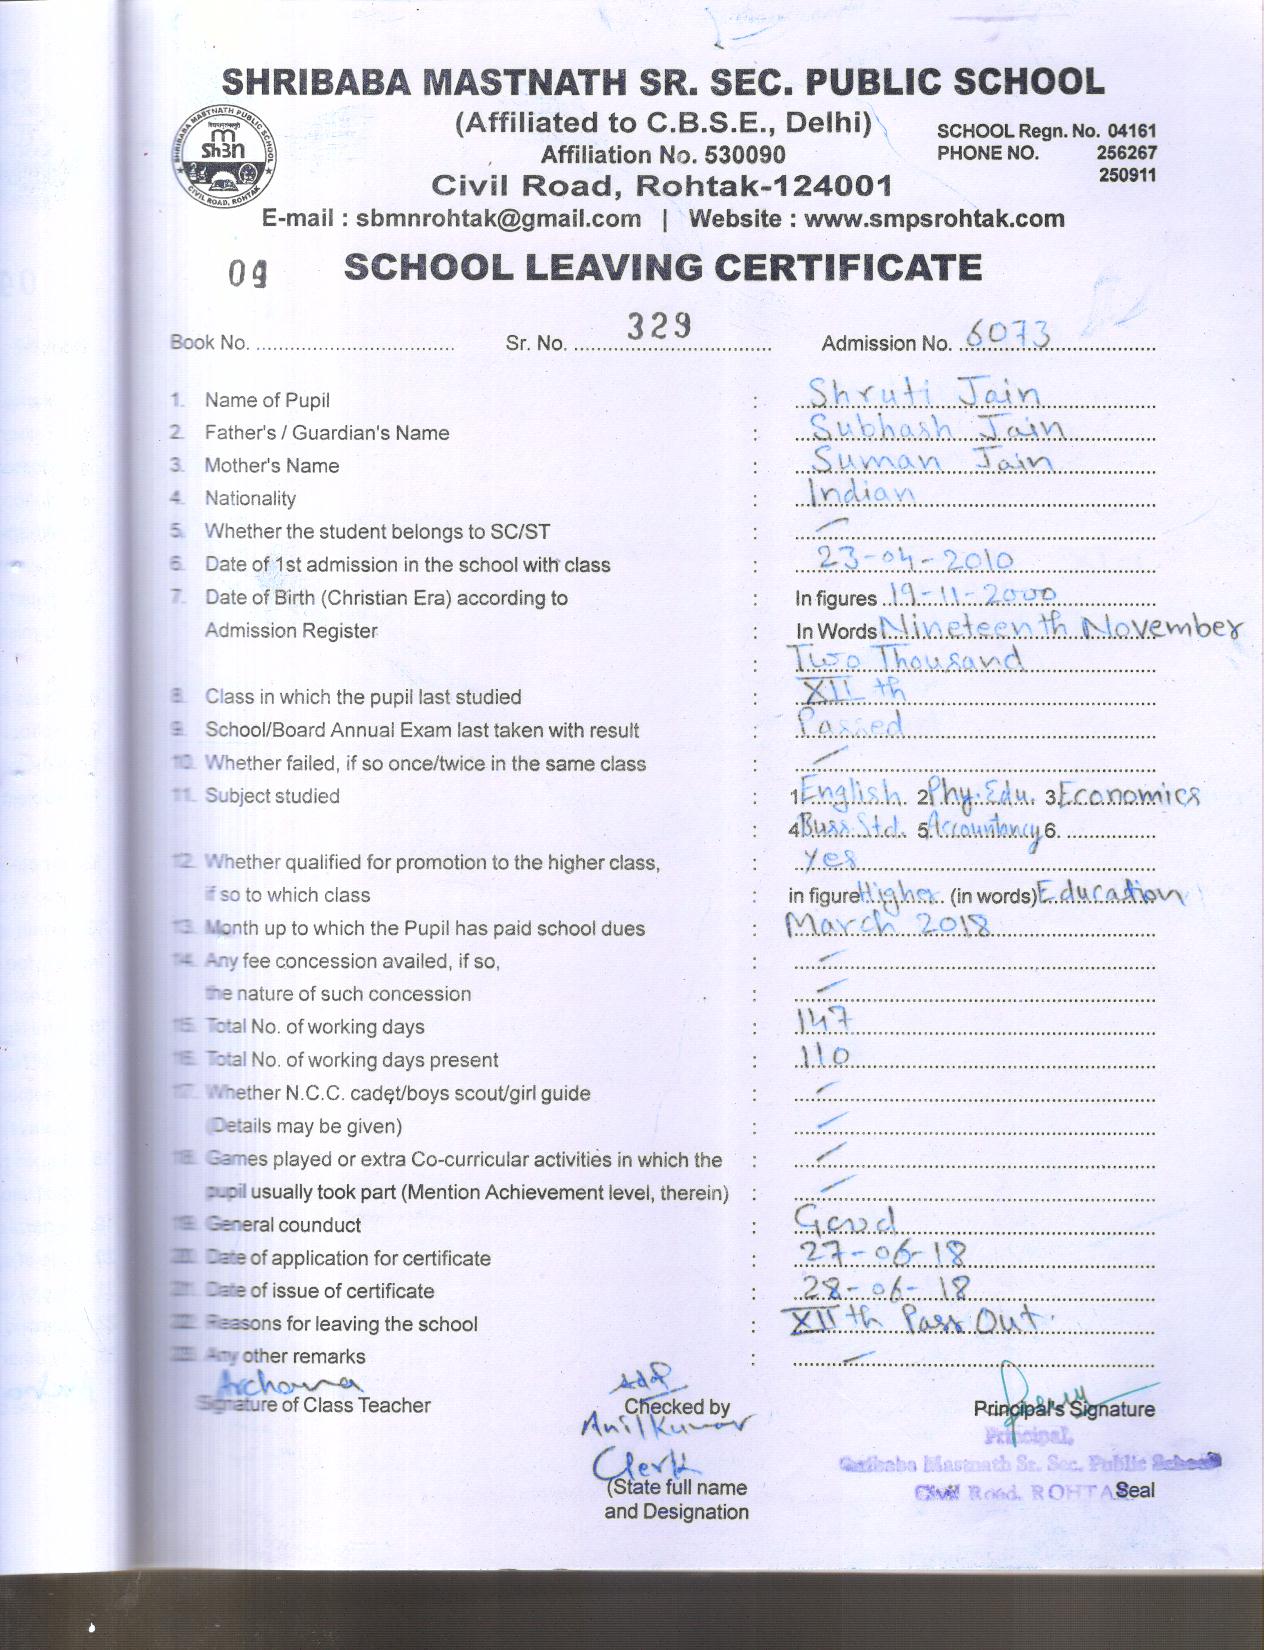 SHRIBABA MASTNATH SR. SEC. PUBLIC SCHOOL
(Affiliated to C.B.S.E., Delhi)
SCHOOL Regn. No. 04161
Affiliation No. 530090
PHONE NO. 256267
250911
MASTNATH PUBLIC SCHOOL
CIVIL ROAD, ROHTAK
Civil Road, Rohtak-124001
E-mail : sbmnrohtak@gmail.com | Website : www.smpsrohtak.com
09 SCHOOL LEAVING CERTIFICATE
Book No. Sr. No. 329 Admission No. 6073
1. Name of Pupil : Shruti Jain
2. Father's / Guardian's Name : Subhash Jain
3. Mother's Name : Suman Jain
4. Nationality : Indian
5. Whether the student belongs to SC/ST : –
6. Date of 1st admission in the school with class : 23-04-2010
7. Date of Birth (Christian Era) according to : In figures 19-11-2000
Admission Register : In Words Nineteenth November
: Two Thousand
8. Class in which the pupil last studied : XII th
9. School/Board Annual Exam last taken with result : Passed
10. Whether failed, if so once/twice in the same class : –
11. Subject studied 1 English. 2 Phy. Edu. 3 Economics
: 4 Buss. Std. 5 Accountancy 6.
12. Whether qualified for promotion to the higher class, : Yes
if so to which class : in figure Higher (in words) Education
13. Month up to which the Pupil has paid school dues : March 2018
14. Any fee concession availed, if so, : –
the nature of such concession : –
15. Total No. of working days : 147
16. Total No. of working days present : 110
17. Whether N.C.C. cadet/boys scout/girl guide : –
(Details may be given) : –
18. Games played or extra Co-curricular activities in which the : –
pupil usually took part (Mention Achievement level, therein) : –
19. General counduct : Good
20. Date of application for certificate : 27-06-18
21. Date of issue of certificate : 28-06-18
22. Reasons for leaving the school : XII th Pass Out.
23. Any other remarks : –
Archana
Signature of Class Teacher Checked by Principal's Signature
Anil Kumar
Principal,
Clerk
Mastnath Sr. Sec. Public School
(State full name Civil Road, ROHTAK Seal
and Designation